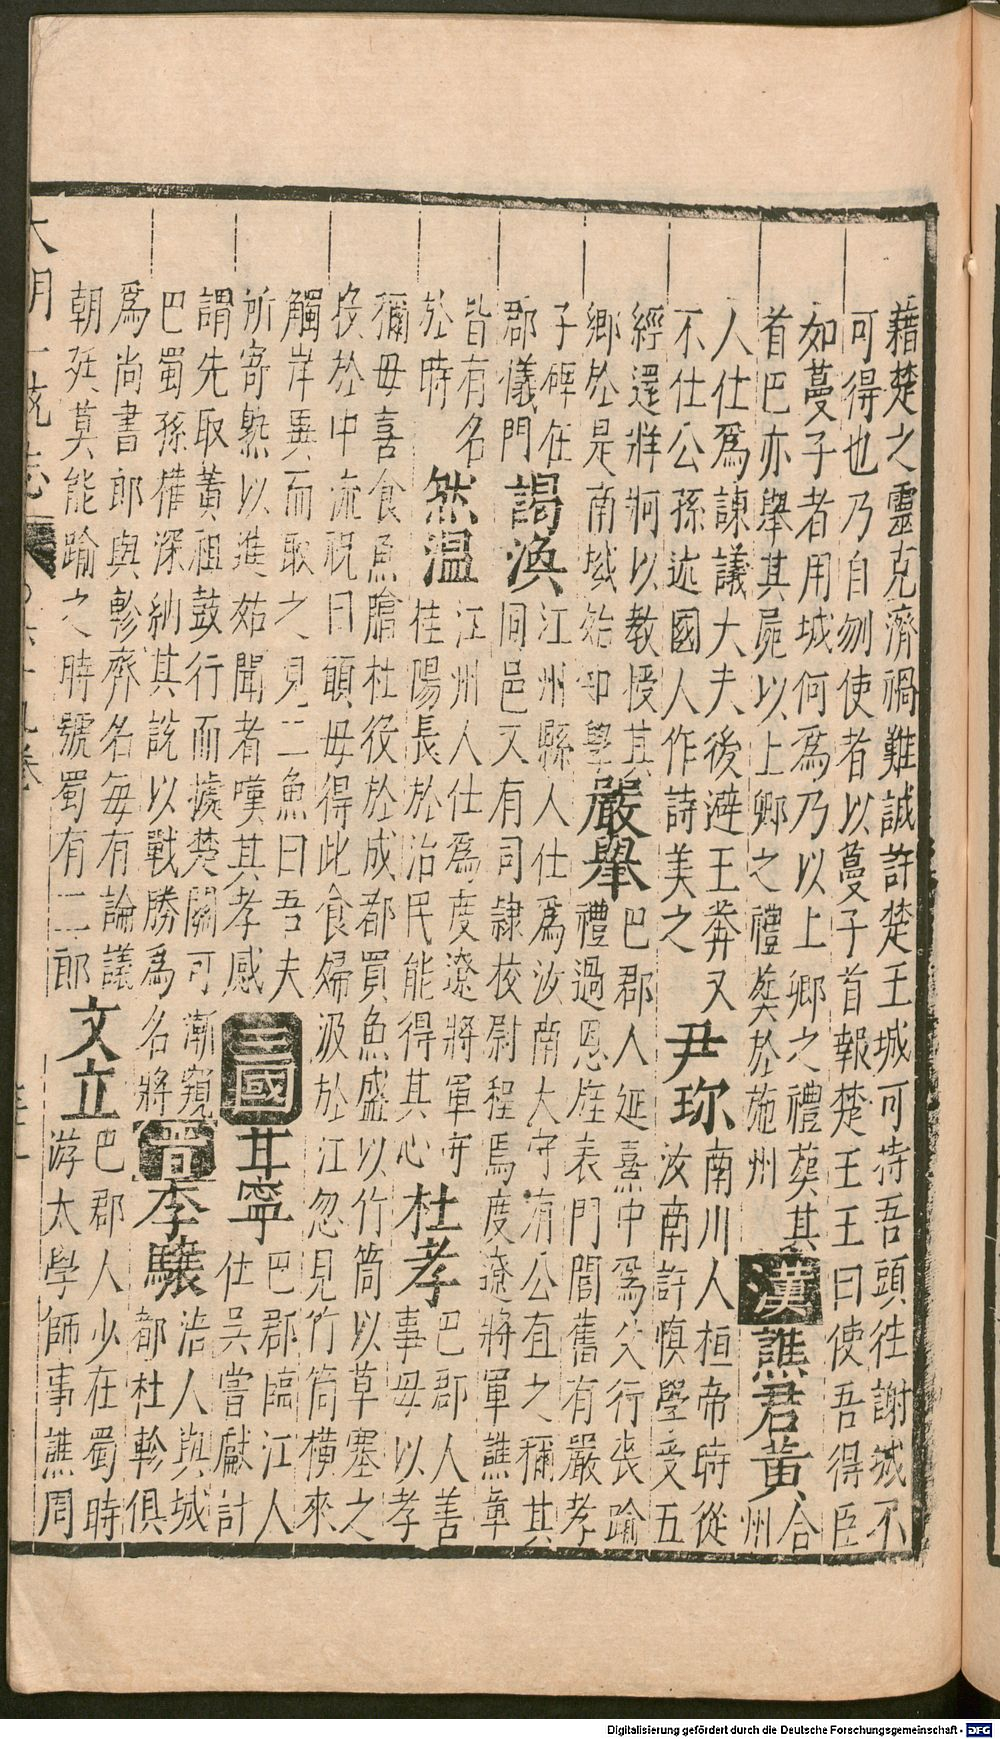 藉楚之靈克濟禍難誠許楚王城可持吾頭往謝城不
可得也乃自刎使者以蔓子首報楚王王曰使吾得臣
如蔓子者用城何為乃以上卿之禮葬其
首巴亦舉其屍以上卿之禮葬於施州
漢
譙君黃
合
州
人仕為諫議大夫後避王莽又
不仕公孫述國人作詩美之
尹珍
南川人桓帝時從
汝南許慎學受五
經還牂牁以教授其
鄉於是南域始知學
嚴舉
巴郡人延熹中為父行喪踰
禮過恩旌表門閭舊有嚴孝
子碑在
郡儀門
謁渙
江州縣人仕為汝南大守有公直之稱其
同邑又有司隸校尉程焉度遼將軍譙章
皆有名
於時
然温
江州人仕為度遼將軍守
桂陽長於治民能得其心
杜孝
巴郡人善
事母以孝
稱母喜食魚膾杜役於成都買魚盛以竹筒以草塞之
投於中流祝曰願母得此食婦汲於江忽見竹筒橫來
觸岸異而取之見二魚曰吾夫
所寄熟以進姑聞者嘆其孝感
三國
甘寧
巴郡臨江人
仕吳嘗獻計
謂先取黃祖鼓行而據楚關可漸窺
巴蜀孫權深納其說以戰勝為名將
晉
李驤
涪人與城
都杜軫俱
為尚書郎與軫齊名每有論議
朝廷莫能踰之時號蜀有二郎
文立
巴郡人少在蜀時
游太學師事譙周
大明一統志
六十九卷
Digitalisierung gefördert durch die Deutsche Forschungsgemeinschaft - DFG